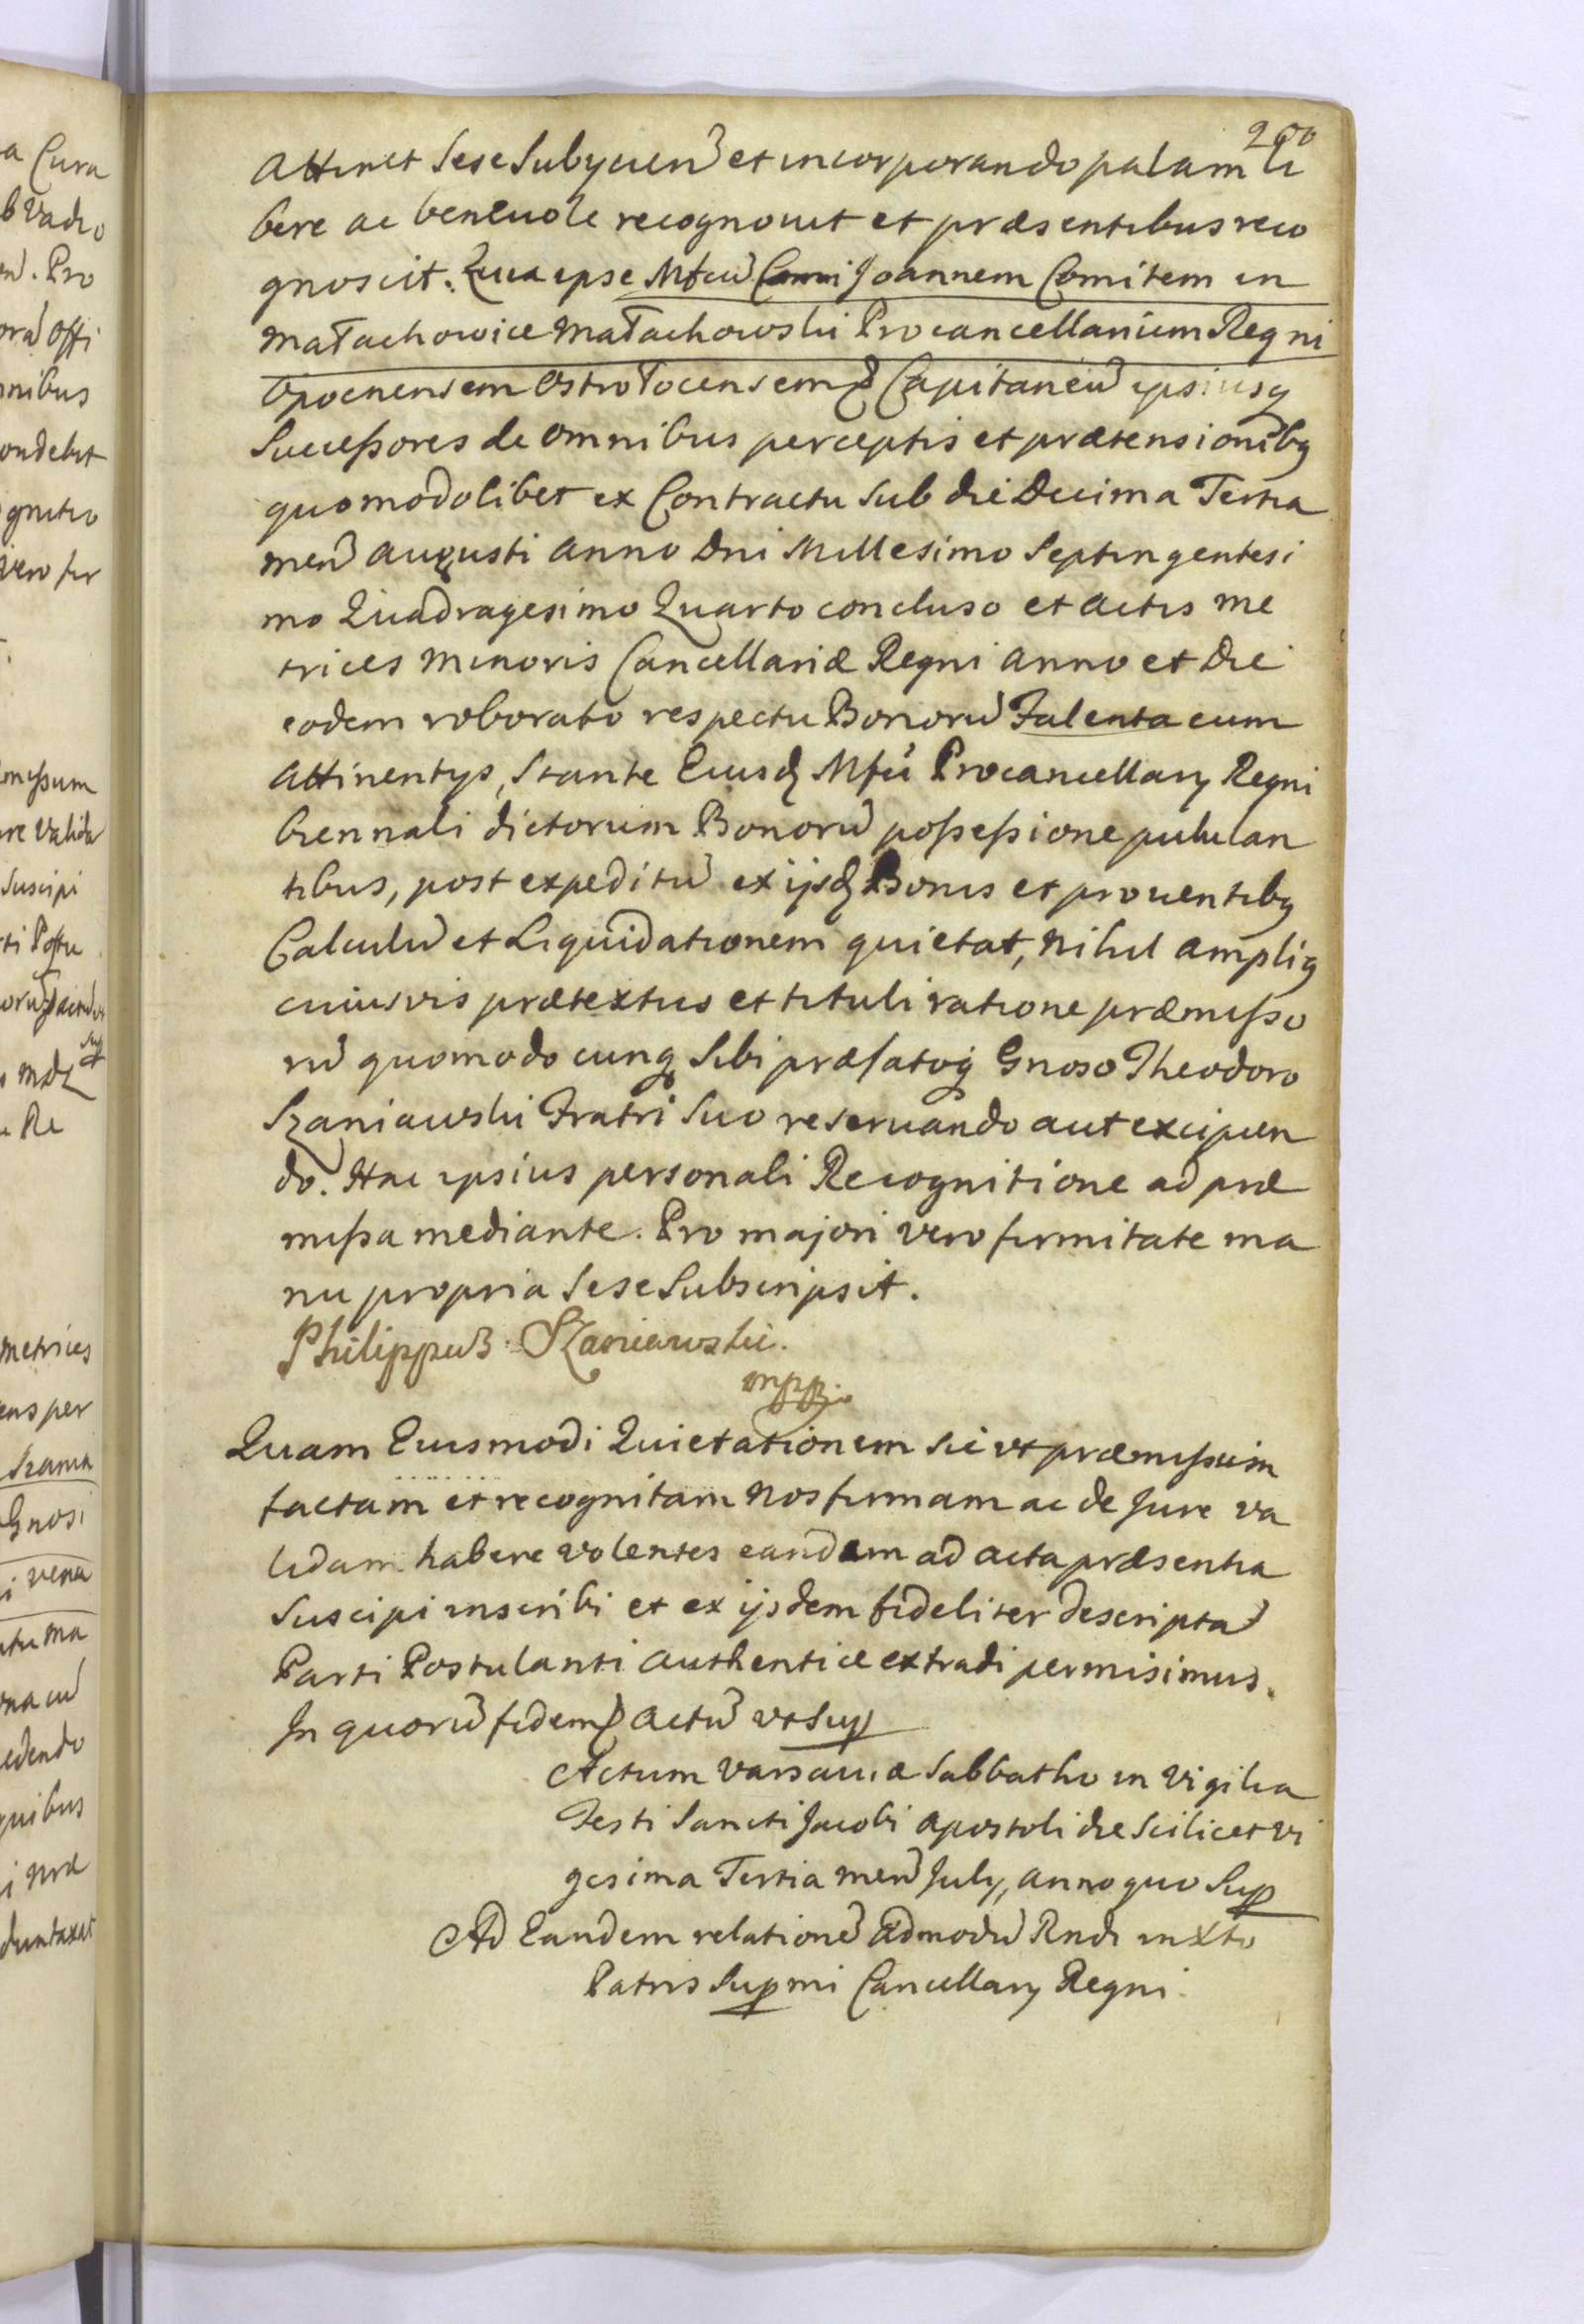 a Cura
b Vadio
en. Pro
ora Offi
nibus
ondebit
gnitio
vero fir
omissum
re Valida
Suscipi
ti Postu
metrices
ens per
Szania
Gnosi
i vena
ona cu
edendo
quibus
i nra
duntaxat
200
Attinet Sese Subyciend et incorporando palam li
bere ac beneuole recognouit et præsentibus reco
gnoscit. Quia ipse Mfcu Joannem Comitem in
Małachowice Małachowski Procancellarium Regni
Opocnensem Ostrołocensemq Capitaneu ipsiusq
Sucessores de omnibus perceptis et prætensionibq
quomodolibet ex Contractu Sub die Decima Tertia
men Augusti Anno Dni Millesimo Septingentesi
mo Quadragesimo Quarto concluso et Actis me
trices Minoris Cancellariæ Regni Anno et Die
eodem roborato respectu Bonoru Falenta cum
Attinentys, Stante Eiusd Mfci Procancellary Regni
biennali dictorum Bonoru possessione pullulan
tibus, post expeditu ex ijsd Bonis et prouentibq
Calculu et Liquidationem quietat, nihil ampliq
cuiusvis prætextus et tituli ratione præmisso
ru quomodocunq Sibi præfatoq Gnoso Theodoro
Szaniawski Fratri Suo reseruando aut excipien
do. Hac ipsius personali Recognitione ad præ
missa mediante. Pro majori vero firmitate ma
nu propria Sese Subscripsit.
Philippus Szaniawski.
mpp.
Quam Eiusmodi Quietationem sic vt præmissum
factam et recognitam nos firmam ac de Jure va
lidam habere volentes eandem ad acta præsentia
Suscipi inscribi et ex ijsdem fideliter descripta
Parti Postulanti Authentice extradi permisimus.
In quoru fidem Actu vt Sup
Actum Varsauiæ Sabbatho in Vigilia
Festi Sancti Jacobi Apostoli die Scilicet vi
gesima Tertia men July, anno quo Sup
Ad Eandem relatione Admodu Rndi in Xto
Patris Supmi Cancellary Regni